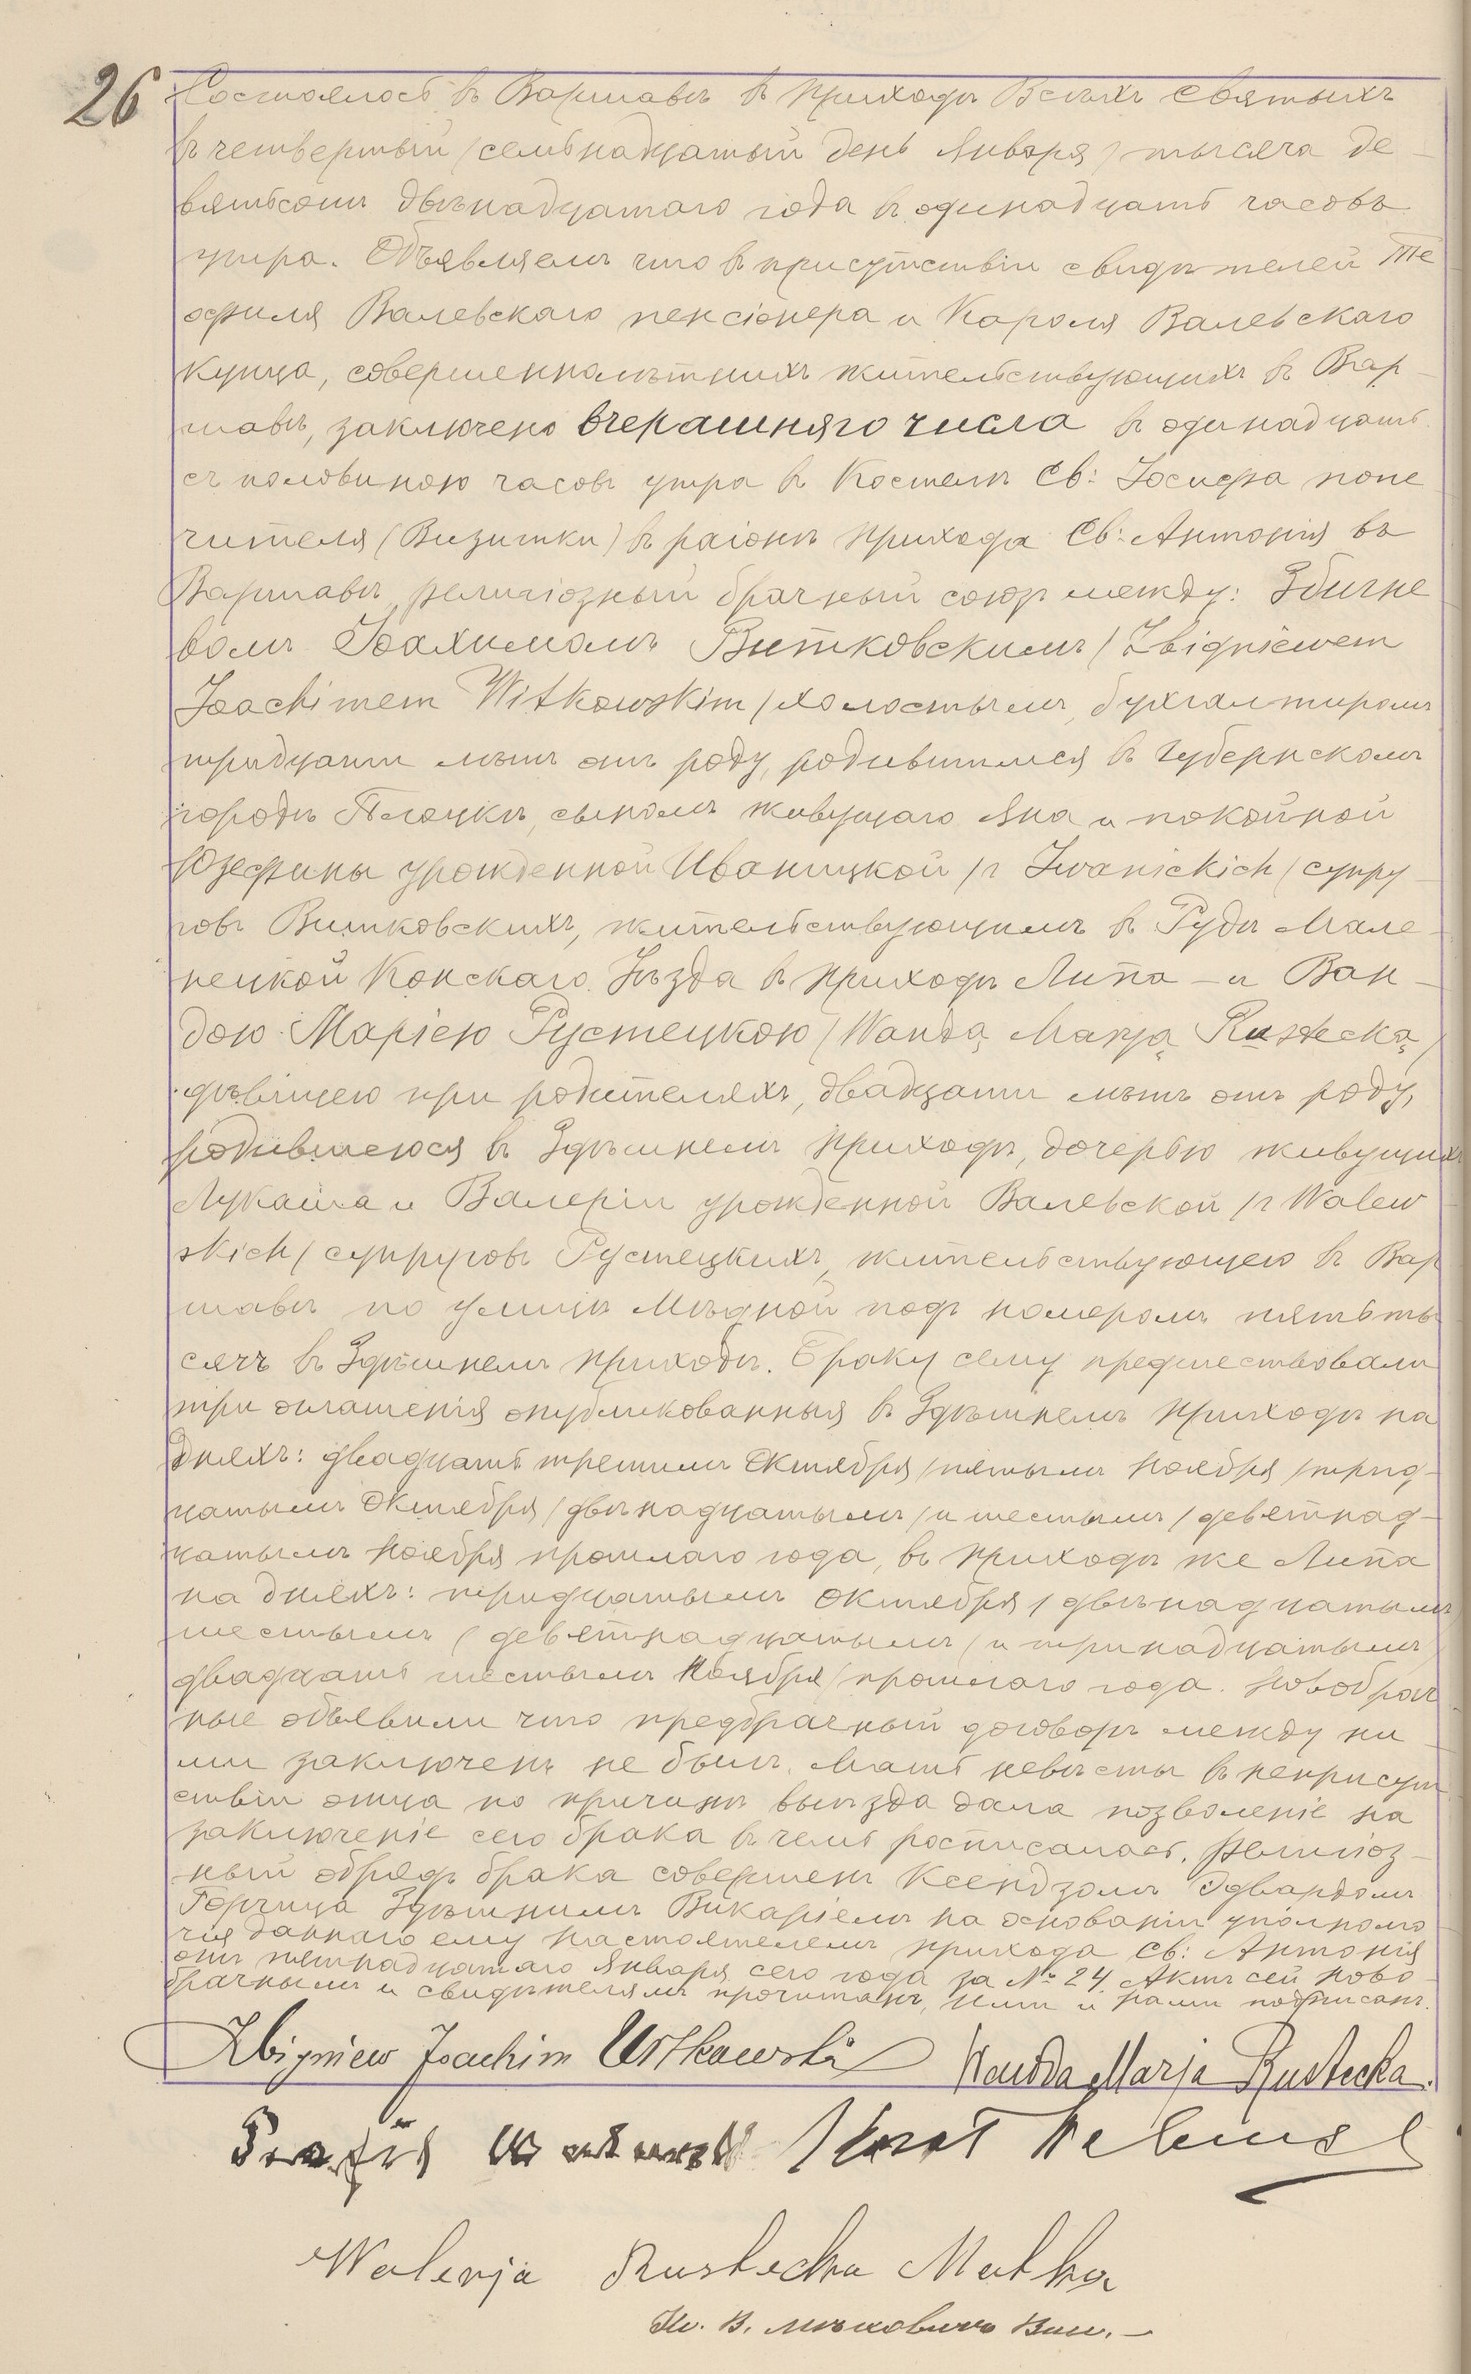 26 Состоялось въ Варшавѣ въ приходѣ Всѣхъ Святыхъ
въ четвертый /семьнадцатый день Января/ тысяча де-
вятьсотъ двѣнадцатаго года въ одинадцать часовъ
утра. Объявляемъ что въ присутствіи свидѣтелей Те-
офиля Валевскаго пенсіонера и Кароля Валевскаго
купца, совершеннолѣтнихъ жительствующихъ въ Вар-
шавѣ, заключено вчерашняго числа въ одинадцать
съ половиною часовъ утра въ Костелѣ Св: Іосифа попе
чителя (Визитки) въ раіонѣ прихода Св: Антонія въ
Варшавѣ религіозный брачный союзъ между: Збигне
вомъ Іоахимомъ Витковскимъ /Zbigniewem
Joachimem Witkowskim/ холостымъ, бухгалтиромъ
тридцати лѣтъ отъ роду, родившимся въ Губернскомъ
городѣ Плоцкѣ, сыномъ живущаго Яна и покойной
Юзефины урожденной Иваницкой /z Iwanickich/ супру-
говъ Витковскихъ, жительствующимъ въ Рудѣ Мале-
нецкой Конскаго Уѣзда въ приходѣ Липа — и Ван-
дою Маріею Рустецкою /Wandą Marją Rustecką/
дѣвицею при родителяхъ, двадцати лѣтъ отъ роду,
родившеюся въ здѣшнемъ приходѣ, дочерью живущихъ
Лукаша и Валеріи урожденной Валевской /z Walew
skich/ супруговъ Рустецкихъ, жительствующею въ Вар
шавѣ по улицѣ Мѣдной подъ номеромъ пятьты
сячъ въ здѣшнемъ приходѣ. Браку сему предшествовали
три оглашенія опубликованныя въ здѣшнемъ приходѣ на
дняхъ: двадцать третьимъ Октября /пятымъ Ноября/ трид-
цатымъ Октября /двѣнадцатымъ/ и шестымъ /девятнад-
цатымъ Ноября прошлаго года, въ приходѣ же Липа
на дняхъ: тридцатымъ Октября /двѣнадцатымъ/
шестымъ /девятнадцатымъ/ и тринадцатымъ/
двадцать шестымъ Ноября/ прошлаго года. Новобрач
ные объявили что предбрачный договоръ между ни-
ми заключенъ не былъ. Мать невѣсты въ неприсут
ствіи отца по причинѣ выѣзда дала позволеніе на
заключеніе сего брака въ чемъ росписалась. Религіоз-
ный обрядъ брака совершенъ Ксендзомъ Эдвардомъ
Горчица здѣшнимъ Викаріемъ на основаніи уполномо
чія даннаго ему настоятелемъ прихода Св: Антонія
отъ пятнадцатаго Января сего года за № 24 Актъ сей ново-
брачнымъ и свидѣтелямъ прочитанъ, ими и нами подписанъ.
Zbigniew Joachim Witkowski Wanda Marja Rustecka.
Walerja Rustecka Matka